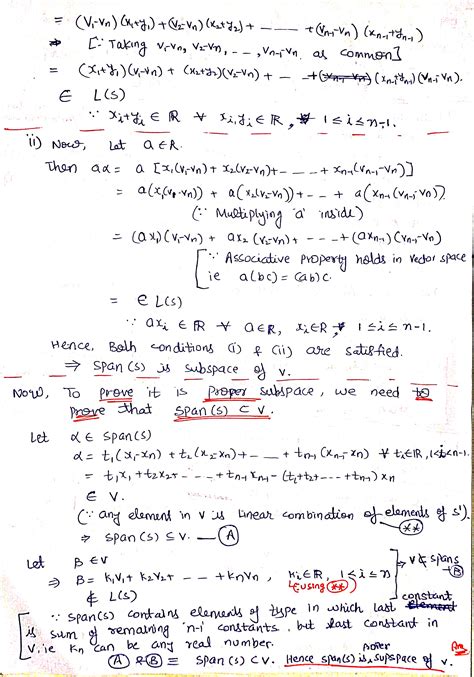 = (V₁-Vn)(x₁+y₁) + (V₂-Vn)(x₂+y₂) + - - - - + (Vn-1-Vn)(xn-1+yn-1)
[∵ Taking V₁-Vn, V₂-Vn, - - -, Vn-1-Vn as common]
= (x₁+y₁)(V₁-Vn) + (x₂+y₂)(V₂-Vn) + - - - + (xn-1+yn-1)(Vn-1-Vn).
∈ L(S)
∵ xi+yi ∈ ℝ ∀ xi, yi ∈ ℝ, 1≤i≤n-1.
ii) Now, Let a∈ℝ.
Then aα = a [x₁(V₁-Vn) + x₂(V₂-Vn) + - - - + xn-1(Vn-1-Vn)]
= a(x₁(V₁-Vn)) + a(x₂(V₂-Vn)) + - - + a(xn-1(Vn-1-Vn))
(∵ Multiplying 'a' inside)
= (ax₁)(V₁-Vn) + ax₂(V₂-Vn) + - - - + (axn-1)(Vn-1-Vn)
[∵ Associative Property holds in Vector space
ie a(bc) = (ab)c.
= ∈ L(S)
∵ axi ∈ ℝ ∀ a∈ℝ, xi∈ℝ ∀ 1≤i≤n-1.
Hence, Both conditions (i) & (ii) are satisfied.
⇒ Span(S) is subspace of V.
Now, To prove it is Proper subspace, we need to
prove that Span(S) ⊂ V.
Let α ∈ Span(S)
α = t₁(x₁-xn) + t₂(x₂-xn) + - - - + tn-1(xn-1-xn) ∀ ti∈ℝ, 1≤i≤n-1.
= t₁x₁ + t₂x₂ + - - - + tn-1xn-1 - (t₁+t₂+ - - - + tn-1)xn
∈ V.
(∵ any element in V is linear combination of elements of S').
(**)
⇒ Span(S) ⊆ V. — (A)
Let B ∈ V
⇒ B = k₁V₁ + k₂V₂ + - - - + knVn, ki∈ℝ, 1≤i≤n ⇒ V⊄ Span S
∉ L(S) (using (**)) (B)
[∵ Span(S) contains elements of type in which last constant
is sum of remaining 'n-1' constants, but last constant in
V, ie kn can be any real number.
(A) & (B) ≡ Span(S) ⊂ V. Hence span(S) is proper subspace of V. Ans